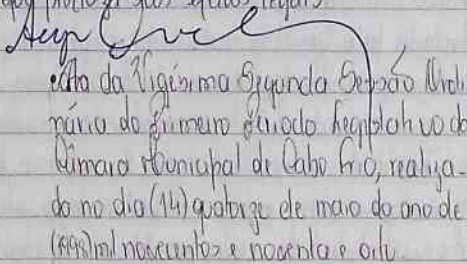 que produza seus efeitos legais.
Ata da Vigésima Segunda Sessão Ordi
nária do Primeiro Período Legislativo da
Câmara Municipal de Cabo Frio, realiza-
do no dia (14) quatorze de maio do ano de
(1998) mil novecentos e noventa e oito.